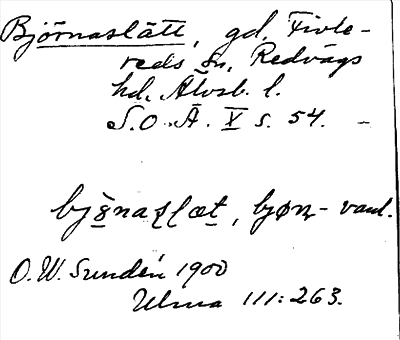 Björnaslätt, gd. Fivle-
reds sn, Redvägs
hd. Älvsb. l.
S.O.Ä. V s. 54. –
bjö̀naʂlæt, bjøɳ- vanl.
O. W. Sundén 1900
Ulma 111:263.